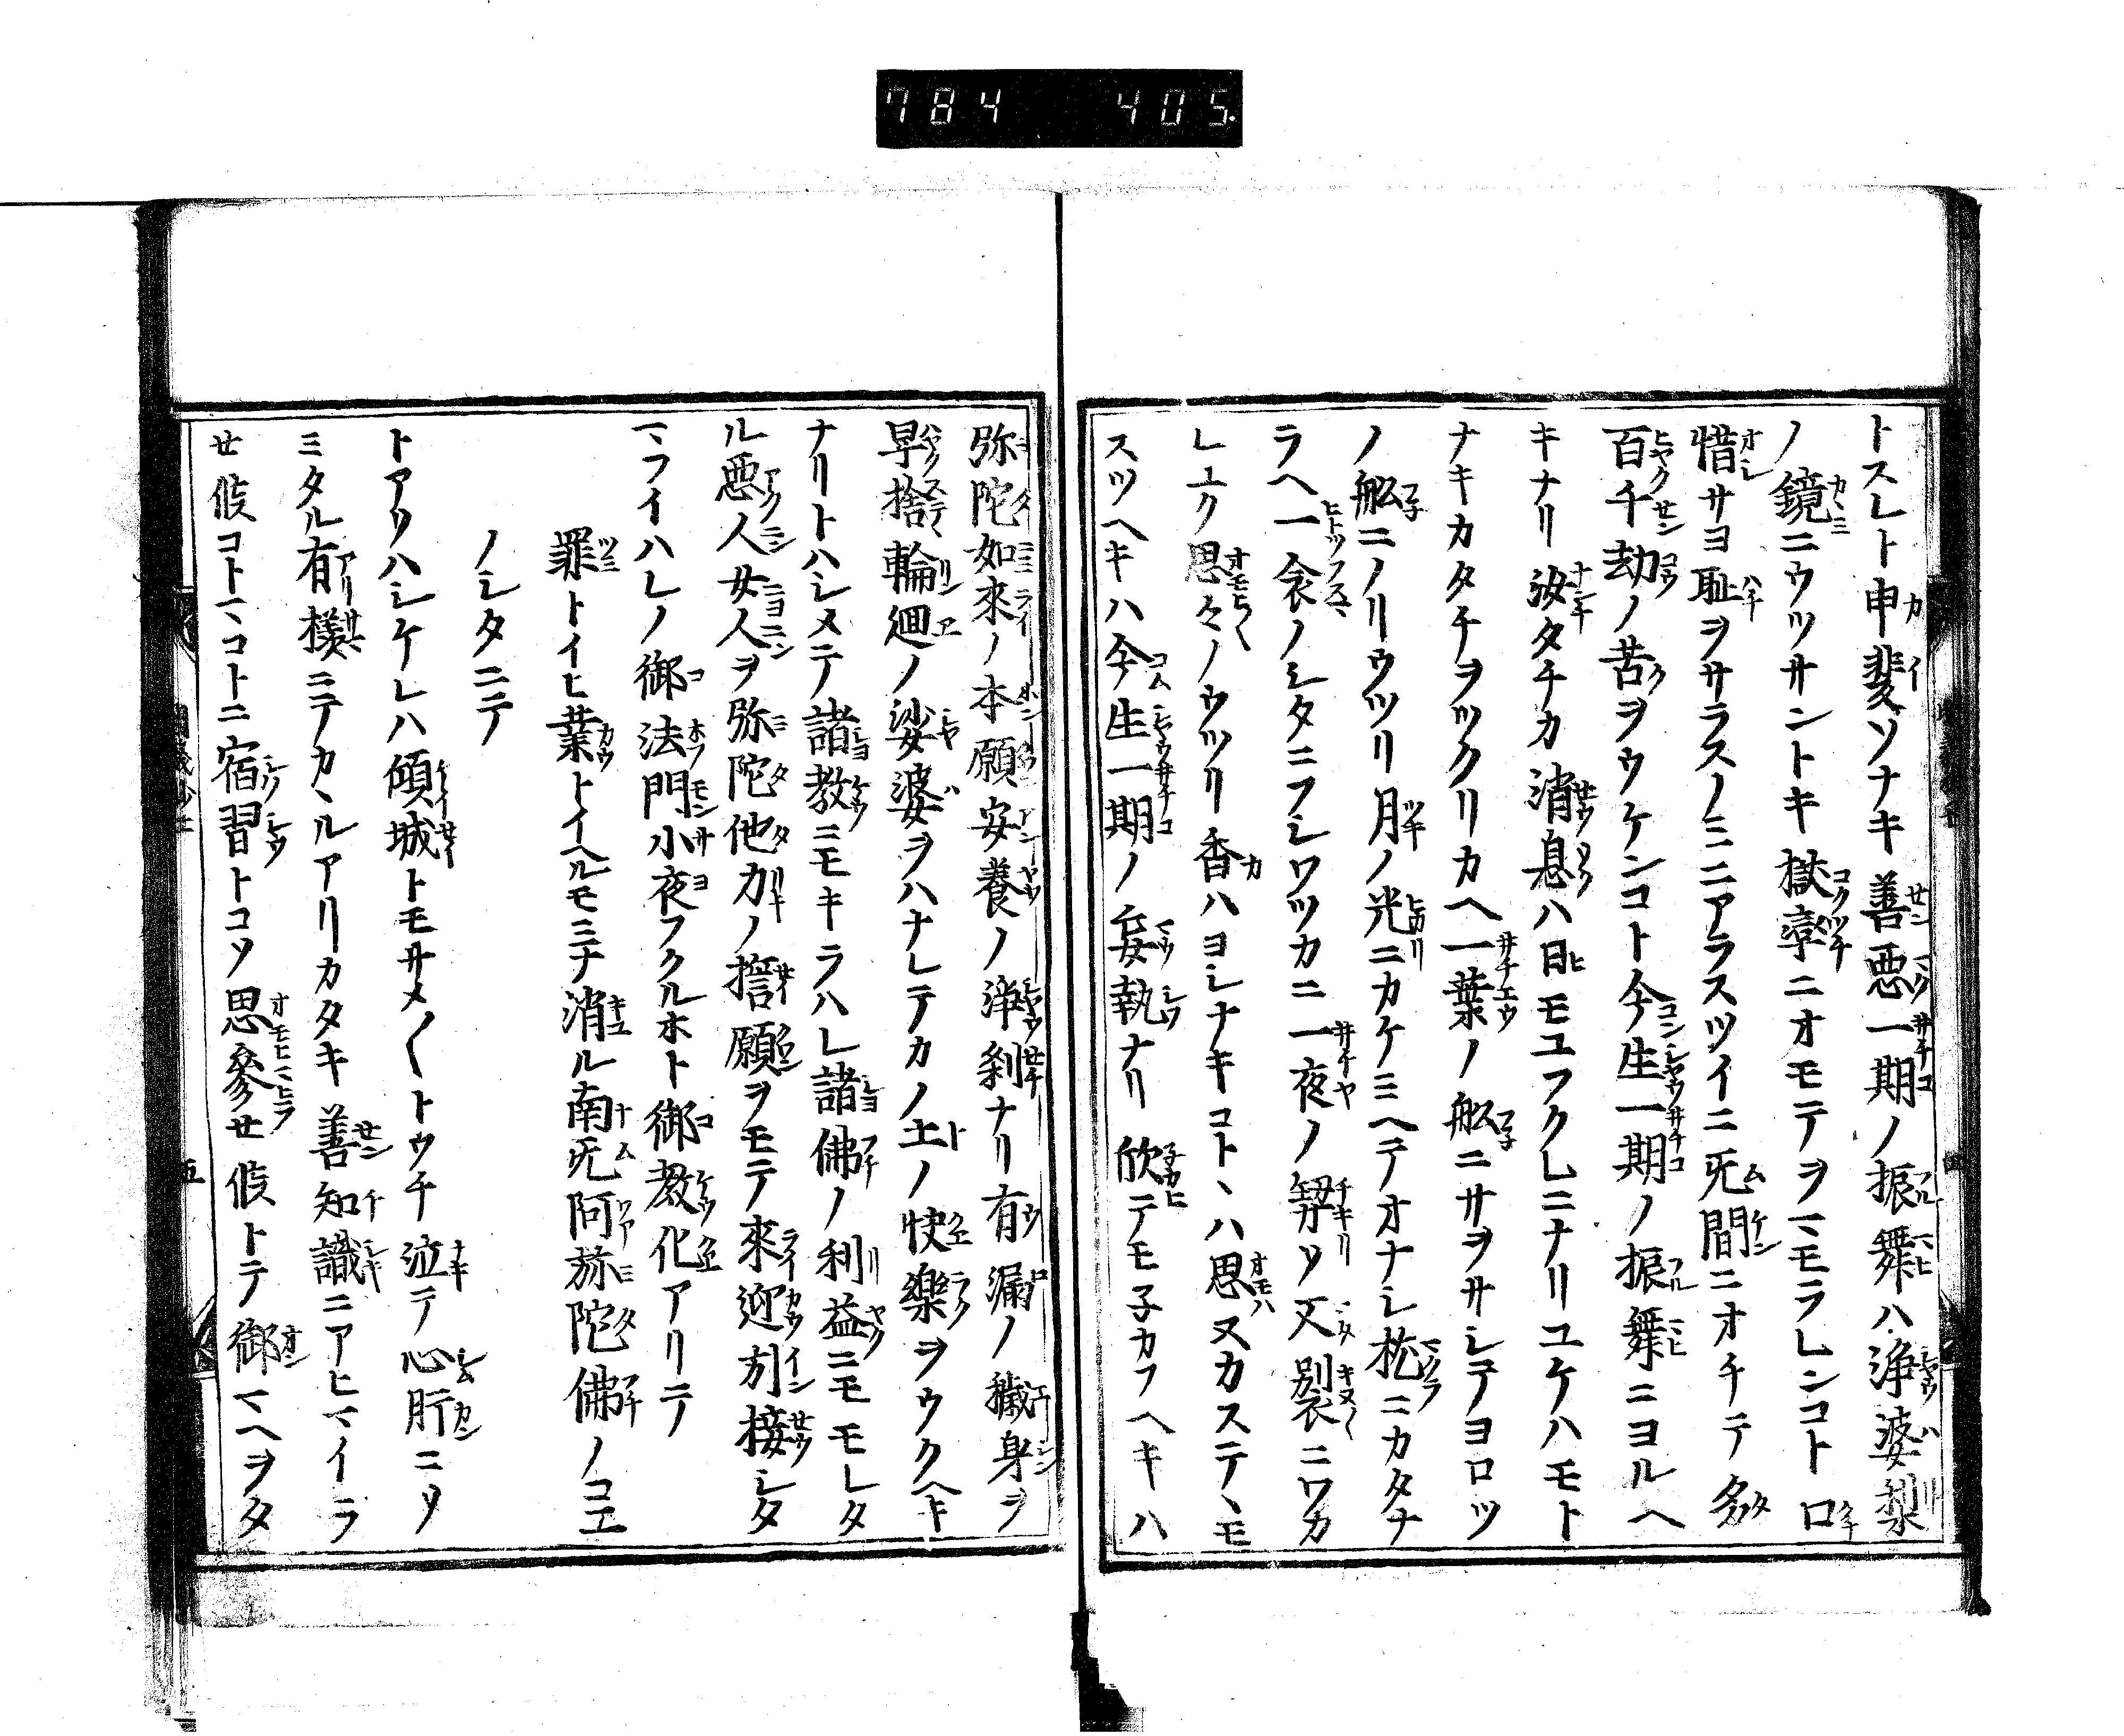 784 405.
トスレト申斐ソナキ善悪一期ノ振舞ハ浄婆梨
ノ鏡ニウツサントキ獄卒ニオモテヲマモラレンコト口
惜サヨ恥ヲサラスノミニアラスツイニ旡間ニオチテ多
百千劫ノ苦ヲウケンコト今生一期ノ振舞ニヨルヘ
キナリ汝タチカ消息ハ日モユフクレニナリユケハモト
ナキカタチヲツクリカヘ一葉ノ舩ニサヲサシテヨロツ
ノ舩ニノリウツリ月ノ光ニカケミヘテオナシ枕ニカタナ
ラヘ一衾ノシタニフシワツカニ一夜ノ契ソ又別衣ニワカ
レユク思々ノウツリ香ハヨシナキコトヽハ思ヌカステヽモ
スツヘキハ今生一期ノ妄執ナリ欣テモ子カフヘキハ
弥陀如來ノ本願安養ノ浄刹ナリ有漏ノ穢身ヲ
早捨輪廻ノ娑婆ヲハナレテカノ土ノ快樂ヲウクヘキ
ナリトハシメテ諸教ニモキラハレ諸佛ノ利益ニモモレタ
ル悪人女人ヲ弥陀他力ノ擔願ヲモテ來迎引接シタ
マフイハレノ御法門小夜フクルホト御教化アリテ
罪トイヒ業トイヘルモミナ消ル南旡阿弥陀佛ノコエ
ノシタニテ
トアソハシケレハ傾城トモサメ〱トウチ泣テ心肝ニソ
ミタル有樣ニテカヽルアリカタキ善知識ニアヒマイラ
せ候コトマコトニ宿習トコソ思參せ候トテ御マヘヲタ
五